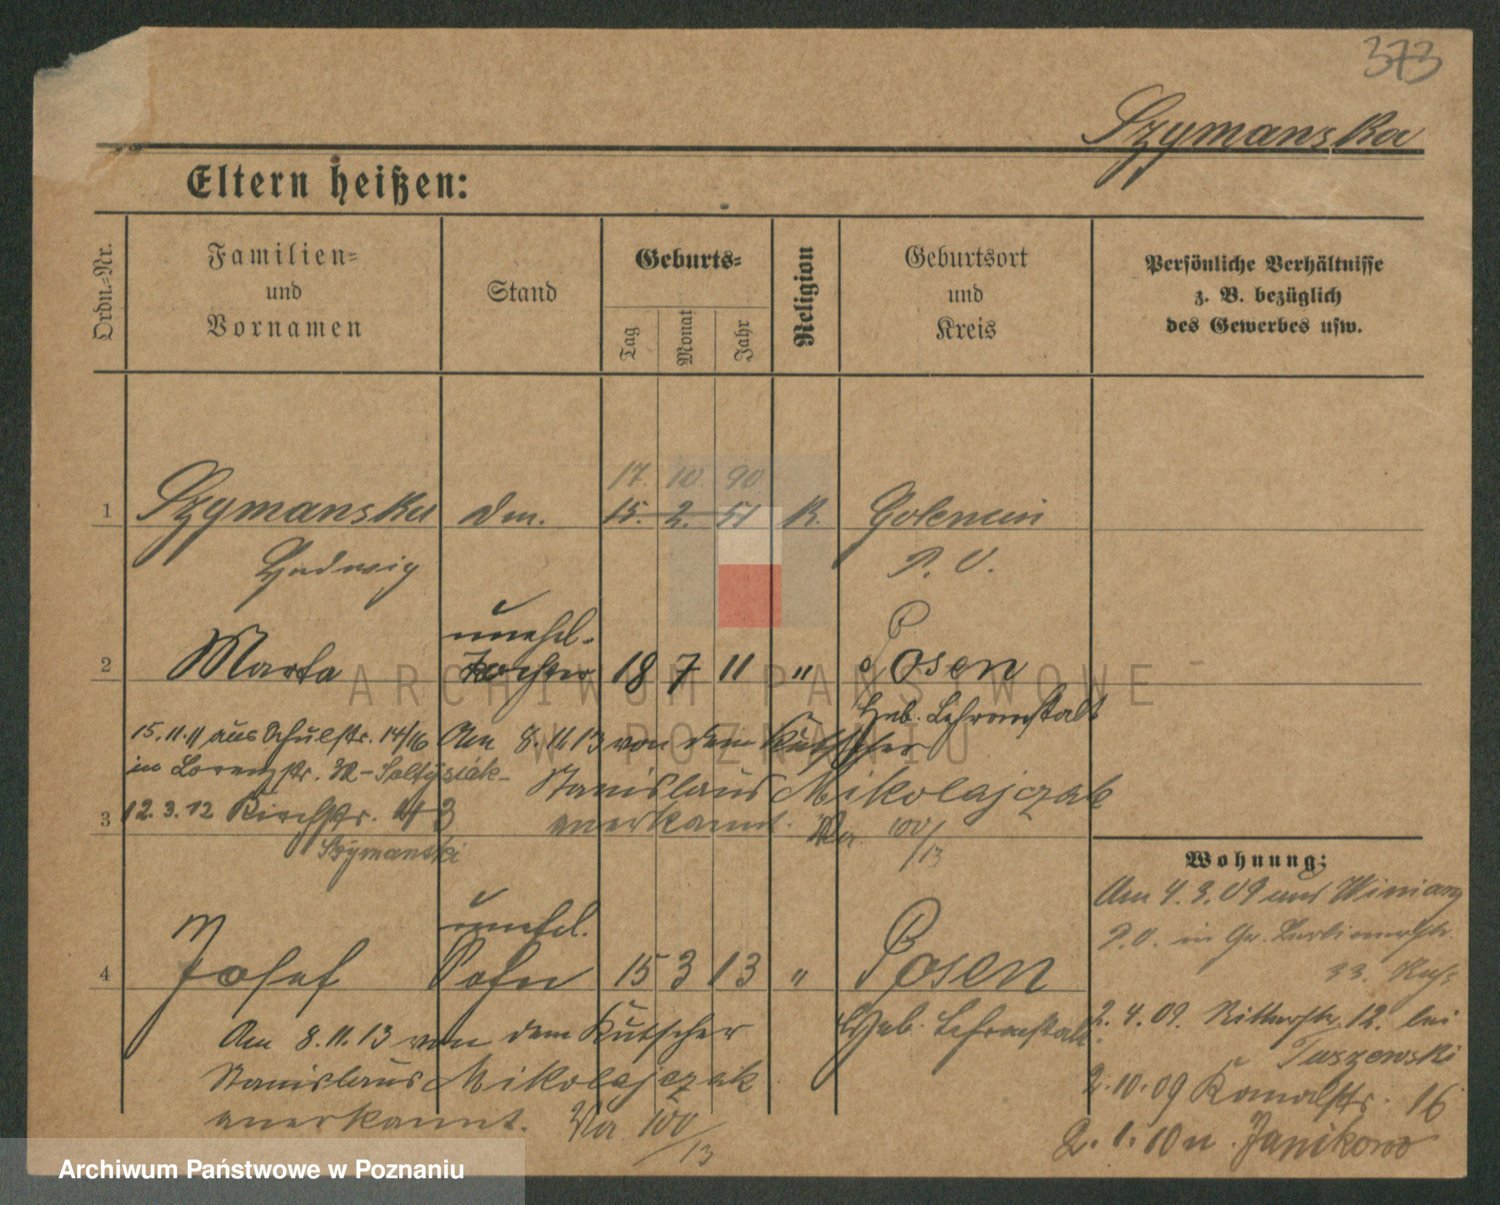 373
Szymanska
Eltern heißen:
Ordn.=Nr.
Familien=
und
Vornamen
Stand
Geburts=
Tag
Monat
Jahr
Religion
Geburtsort
und
Kreis
Persönliche Verhältnisse
z. B. bezüglich
des Gewerbes usw.
17. 10. 90
1 Szymanska 15. 2. 51 K. Golencin
Hedwig P. O.
unehel.
2 Marta Tochter 18 7 11 " Posen
Heb. Lehranstalt
15.11.11 aus Schulstr. 14/16 Am 8.11.13 von dem Kutscher
in Lorenzstr. - Soltysiak -
Stanislaus Mikolajczak
3 12.3.12 Kirchstr.
anerkannt. 100/13
Szymanski
unehel.
4 Josef Sohn 15 3 13 " Posen
Heb. Lehranstalt
Am 8.11.13 von dem Kutscher
Stanislaus Mikolajczak
anerkannt. 100/13
Wohnung:
Am 4.3.09 aus Winiary
P.O. in Gr. Berlinerstr.
33.
2.4.09. Ritterstr. 12. bei
Tuszewski
2.10.09 Kanalstr. 16
2.1.10 n. Janikowo
ARCHIWUM PAŃSTWOWE
W POZNANIU
Archiwum Państwowe w Poznaniu